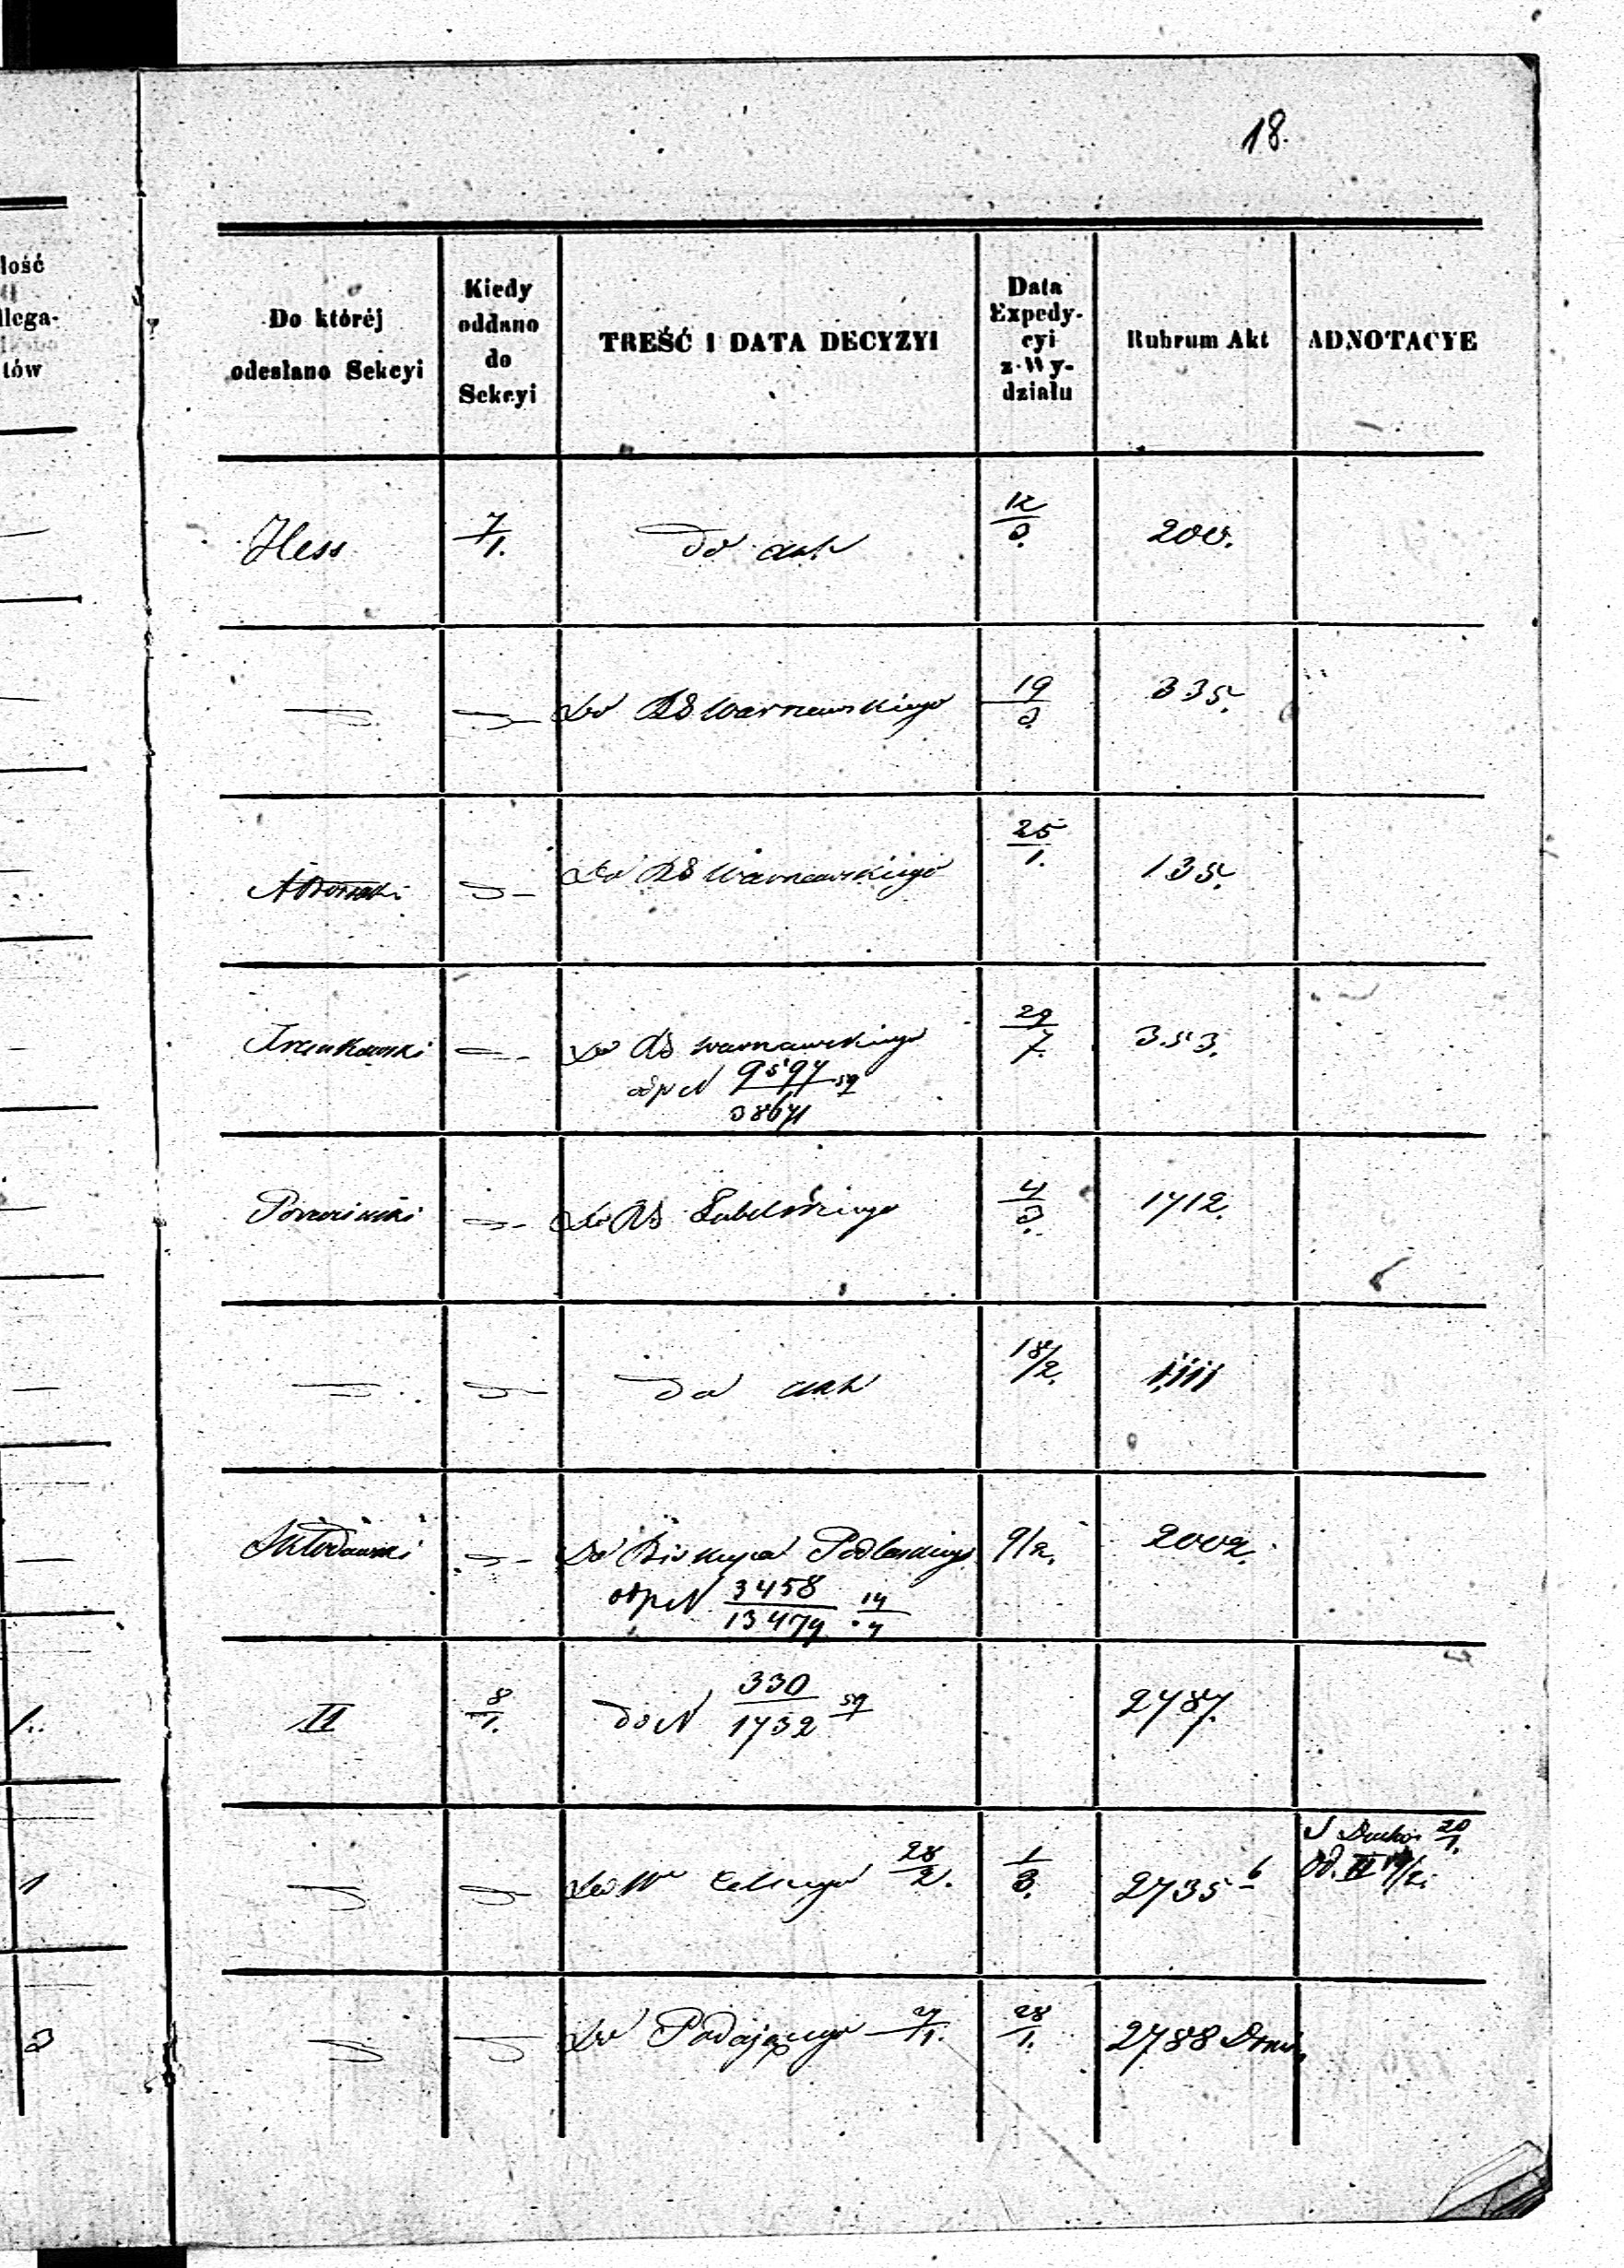 18.
lość
llega-
tów
Do któréj
odesłano Sekcyi
Kiedy
oddano
do
Sekcyi
TREŚĆ I DATA DECYZYI
Data
Expedy-
cyi
z Wy-
działu
Rubrum Akt
ADNOTACYE
Hess 7/1. do akt 12/3. 200.
Do RG Warszawskiego 19/3. 335.
Do RG Warszawskiego 25/1. 135.
Frankowski Do RG Warszawskiego 29/7. 353.
odp N 9597/38671 59
Do RG Lubelskiego 4/3. 1712.
do akt 18/2. 1111
Do Biskupa Podlaskiego 9/2. 2002.
odp N 3458/13474 14/7
1. II 8/1. do N 330/1732 59 2787.
1 28/2. 1/3. 2735 b
20/1.
Od. II
3 Do Podającego 27/1. 28/1. 2788